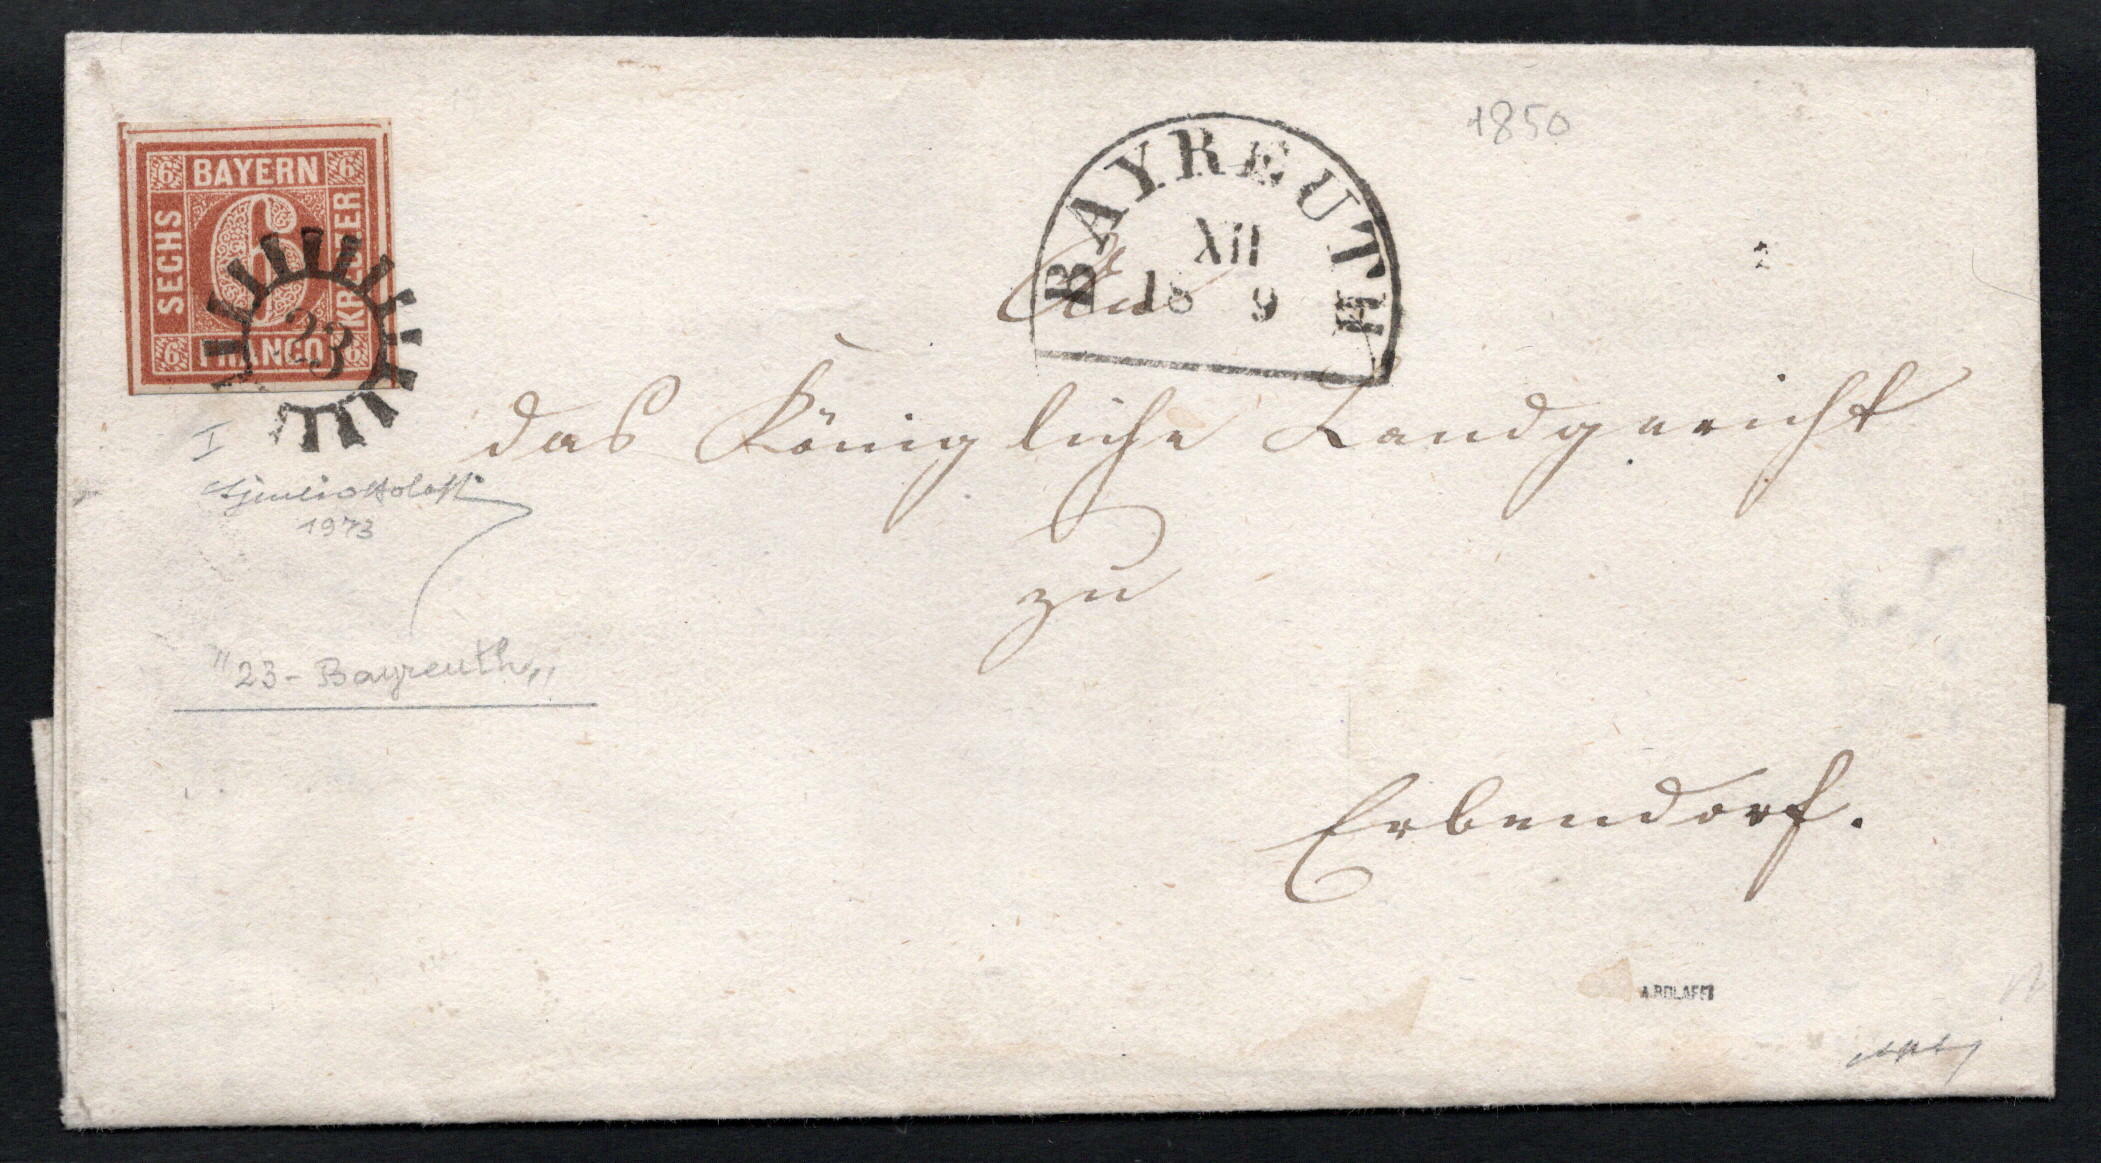 1850
6 BAYERN 6
SECHS
6
KREUZER
6 FRANCO 6
23
BAYREUTH
XII
18 9
An
das Königliche Landgericht
zu
Erbendorf.
I
1973
"23- Bayreuth"
A.BOLAFFI